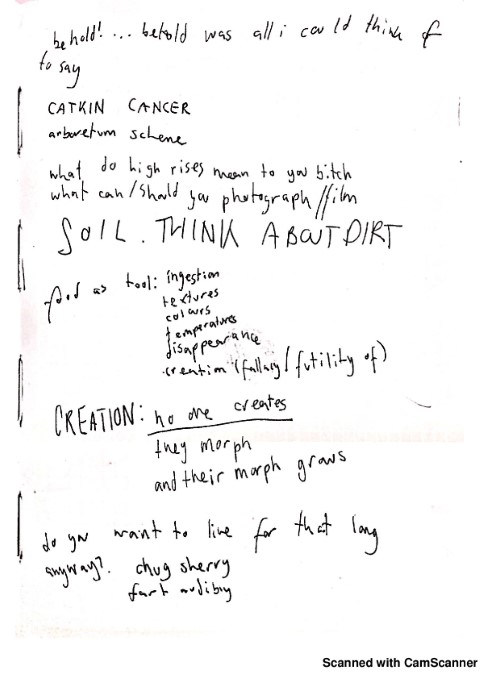 behold! ... behold was all i could think of
to say
CATKIN CANCER
arboretum scheme
what do high rises mean to you bitch
what can/should you photograph//film
SOIL. THINK ABOUT DIRT
food as tool: ingestion
textures
colours
temperatures
disappearance
creation (fallacy/futility of)
CREATION: no one creates
they morph
and their morph grows
do you want to live for that long
anyway?. chug sherry
fart audibly
Scanned with CamScanner